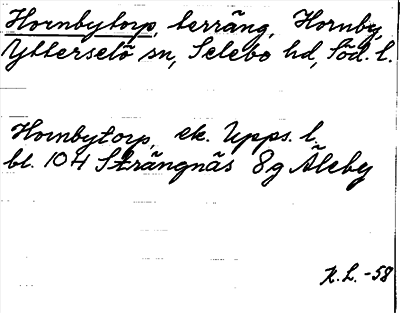 Hornbytorp, terräng, Hornby,
Ytterselö sn, Selebo hd, Söd. l.
Hornbytorp, ek. Upps. l.
bl. 104 Strängnäs 8g Åleby
K.L. -58